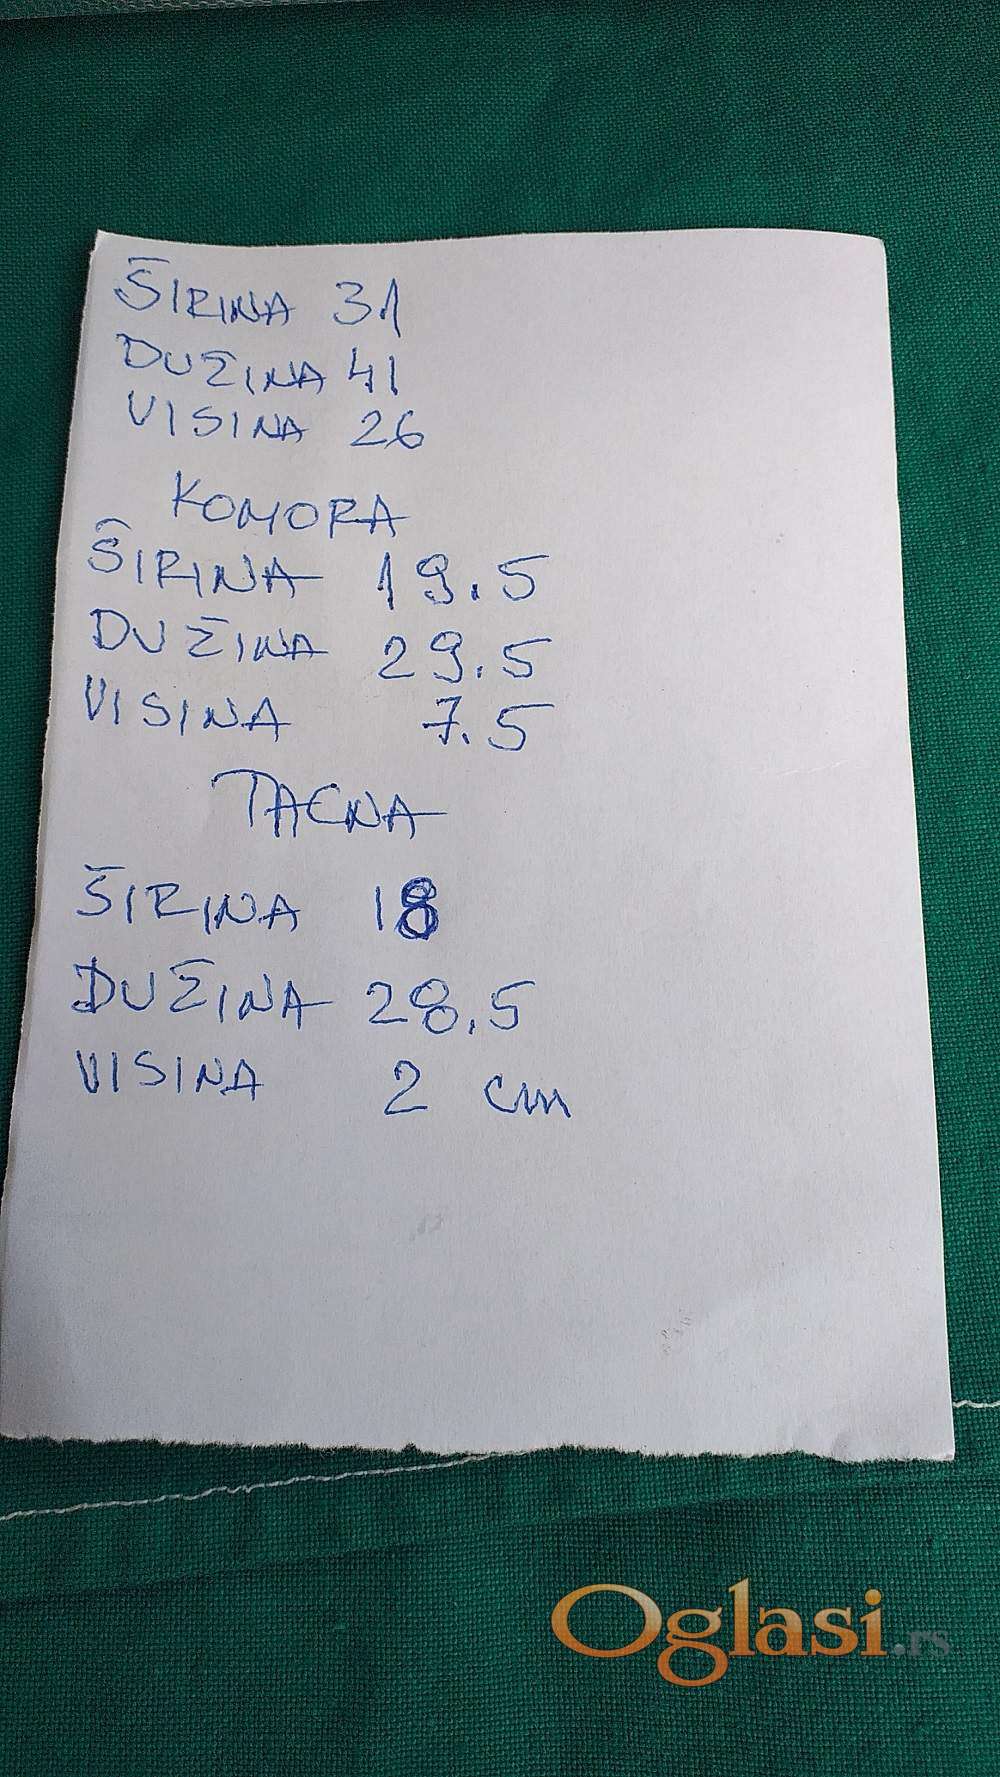 ŠIRINA 31
DUŽINA 41
VISINA 26
KOMORA
ŠIRINA 19.5
DUŽINA 29.5
VISINA 7.5
TACNA
ŠIRINA 18
DUŽINA 28.5
VISINA 2 cm
Oglasi.rs